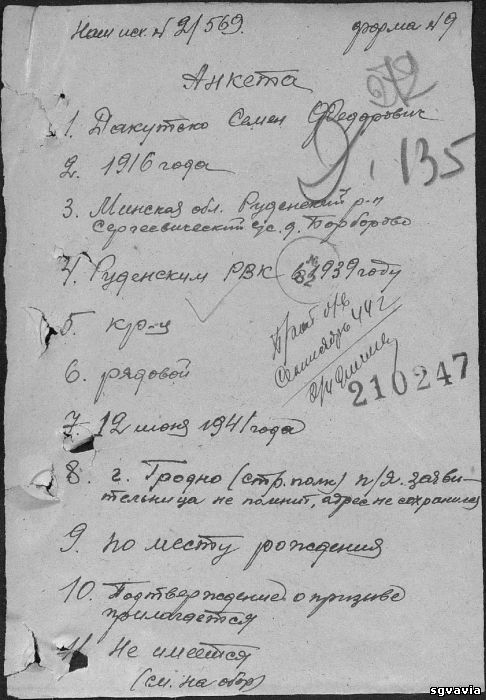 Наш исх. № 2/569. форма № 9
Анкета
1. Дакутько Семен Федорович
2. 1916 года
135
3. Минская обл. Руденский р-н
Сергеевический с/с. д.
4. Руденским РВК в 1939 году
5. кр-ц
6. рядовой
Сентябрь 44 г
210247
7. 12 июня 1941 года
8. г. Гродно (стр. полк) п/я. заяви-
тельница не помнит, адрес не сохранился
9. по месту рождения
10. Подтверждение о призыве
прилагается
11. Не имеется
(см. на обор)
sgvavia